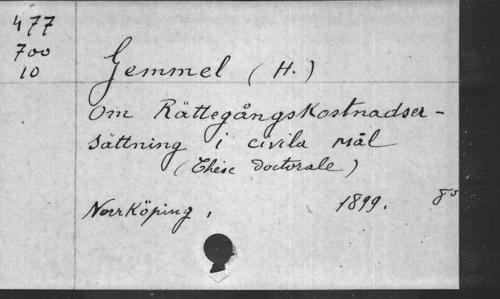 477
700
10
Gemmel (H.)
Om Rättegångskostnadser-
sättning i civila mål
(Thèse doctorale)
Norrköping, 1899. 8º